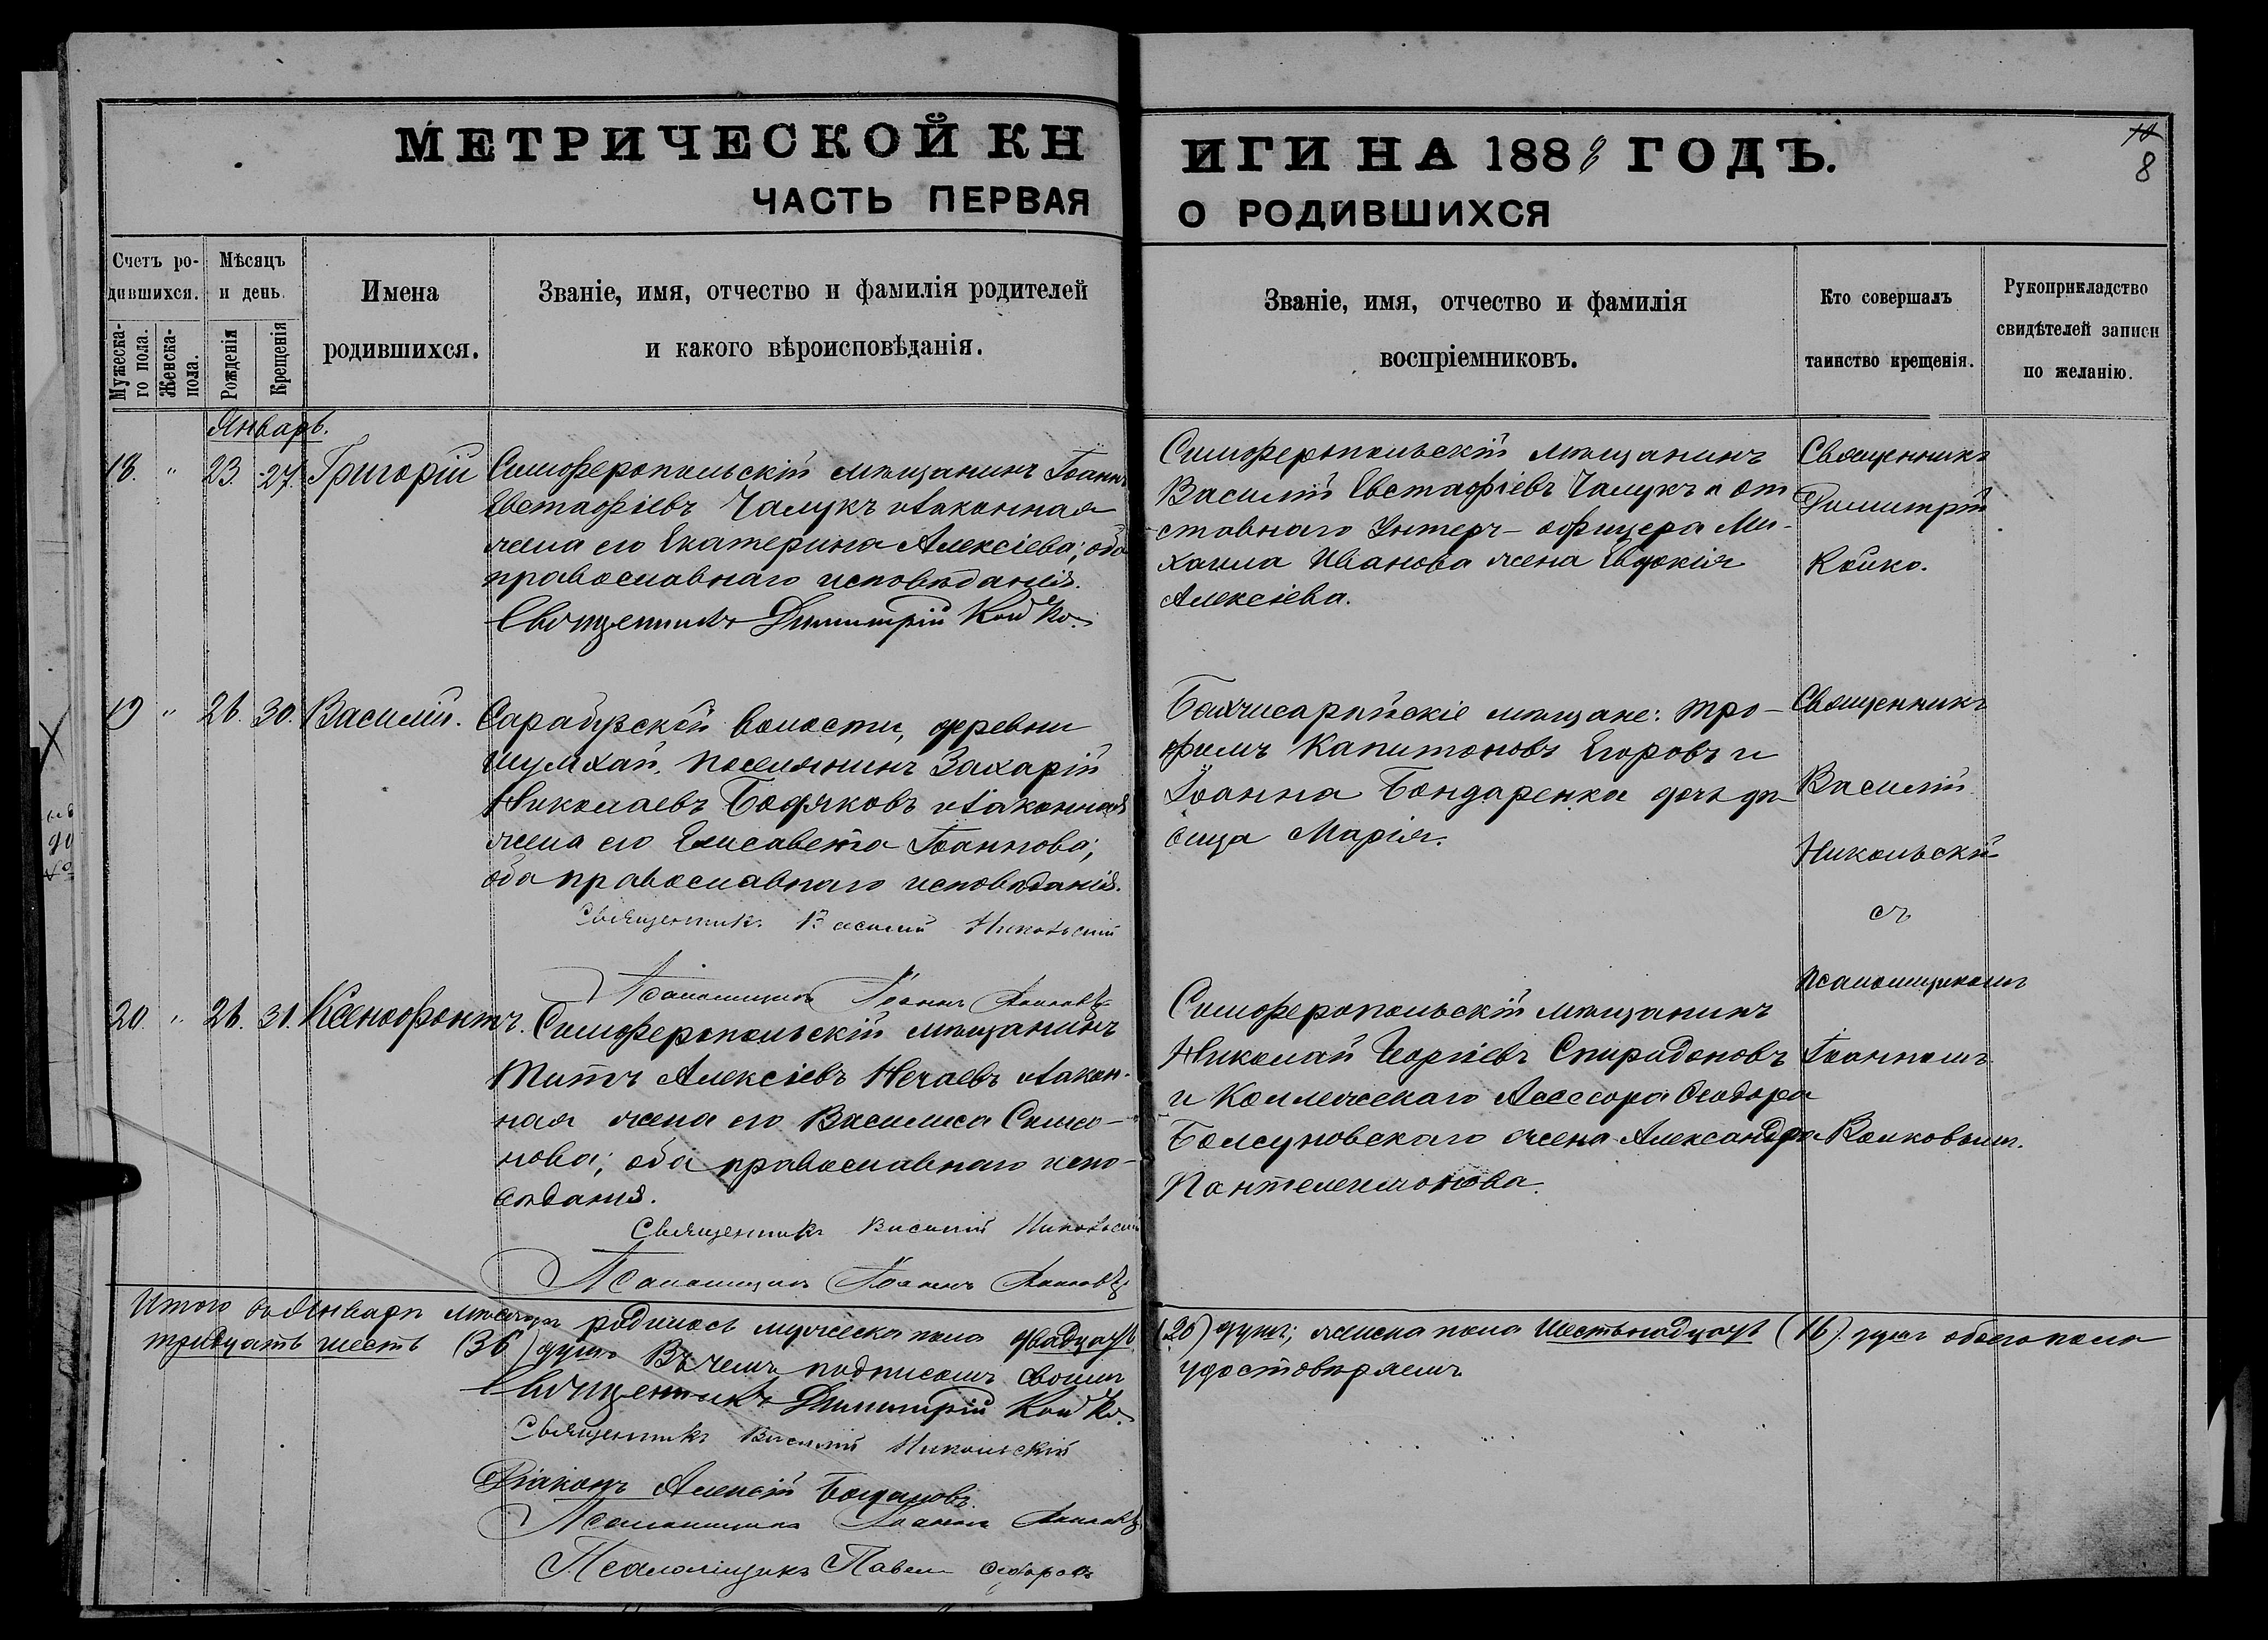 МЕТРИЧЕСКОЙ КН
ЧАСТЬ ПЕРВАЯ
Счетъ ро-
дившихся.
Мужеска-
го пола.
Женска-
пола.
Мѣсяцъ
и день.
Рожденія
Крещенія
Имена
родившихся.
Званіе, имя, отчество и фамилія родителей
и какого вѣроисповѣданія.
Январь.
18. " 23. 27. Григорій Симферопольскій мѣщанинъ Іоаннъ
Евстафіевъ Чалукъ и законная
жена его Екатерина Алексіева; оба
православнаго исповѣданія.
Священникъ Димитрій Койко.
19 " 26. 30. Василій. Сарабузской волости, деревни
Шумхай, поселянинъ Захарій
Николаевъ Бодяковъ и законная
жена его Елисавета Іоаннова;
оба православнаго исповѣданія.
Священникъ Василій Никольскій
Псаломщикъ Іоаннъ
20. " 26. 31. Ксенофонтъ. Симферопольскій мѣщанинъ
Титъ Алексіевъ Нечаевъ и закон-
ная жена его Василиса Симо-
нова; оба православнаго испо-
вѣданія.
Священникъ Василій Никольскій
Псаломщикъ Іоаннъ
Итого въ Январѣ мѣсяцѣ родилось мужеска пола двадцать
тридцать шесть (36) душъ Въ чемъ подписомъ своимъ
Священникъ Димитрій Койко.
Священникъ Василій Никольскій
Діаконъ Алексій
Псаломщикъ Іоаннъ
Псаломщикъ Павелъ
ИГИ НА 1888 ГОДЪ.
О РОДИВШИХСЯ
10
8
Званіе, имя, отчество и фамилія
воспріемниковъ.
Кто совершалъ
таинство крещенія.
Рукоприкладство
свидѣтелей записи
по желанію.
Симферопольскій мѣщанинъ
Василій Евстафіевъ Чалукъ и от
ставнаго Унтеръ-офицера Ми-
хаила Иванова жена Евдокія
Алексіева.
Священникъ
Димитрій
Койко.
Бахчисарайскіе мѣщане: Тро-
фимъ Капитоновъ Егоровъ и
Іоанна Бондаренка дочь дѣ-
вица Марія.
Священникъ
Василій
Никольскій
съ
псаломщикомъ
Іоанномъ
Волковымъ.
Симферопольскій мѣщанинъ
Николай Георгіевъ Спиридоновъ
и Коллежскаго Ассесора Ѳеодора
Болсуновскаго жена Александра
Пантелеимонова.
(20) душъ; женска пола шестьнадцать (16) душъ обоего пола
удостовѣряемъ